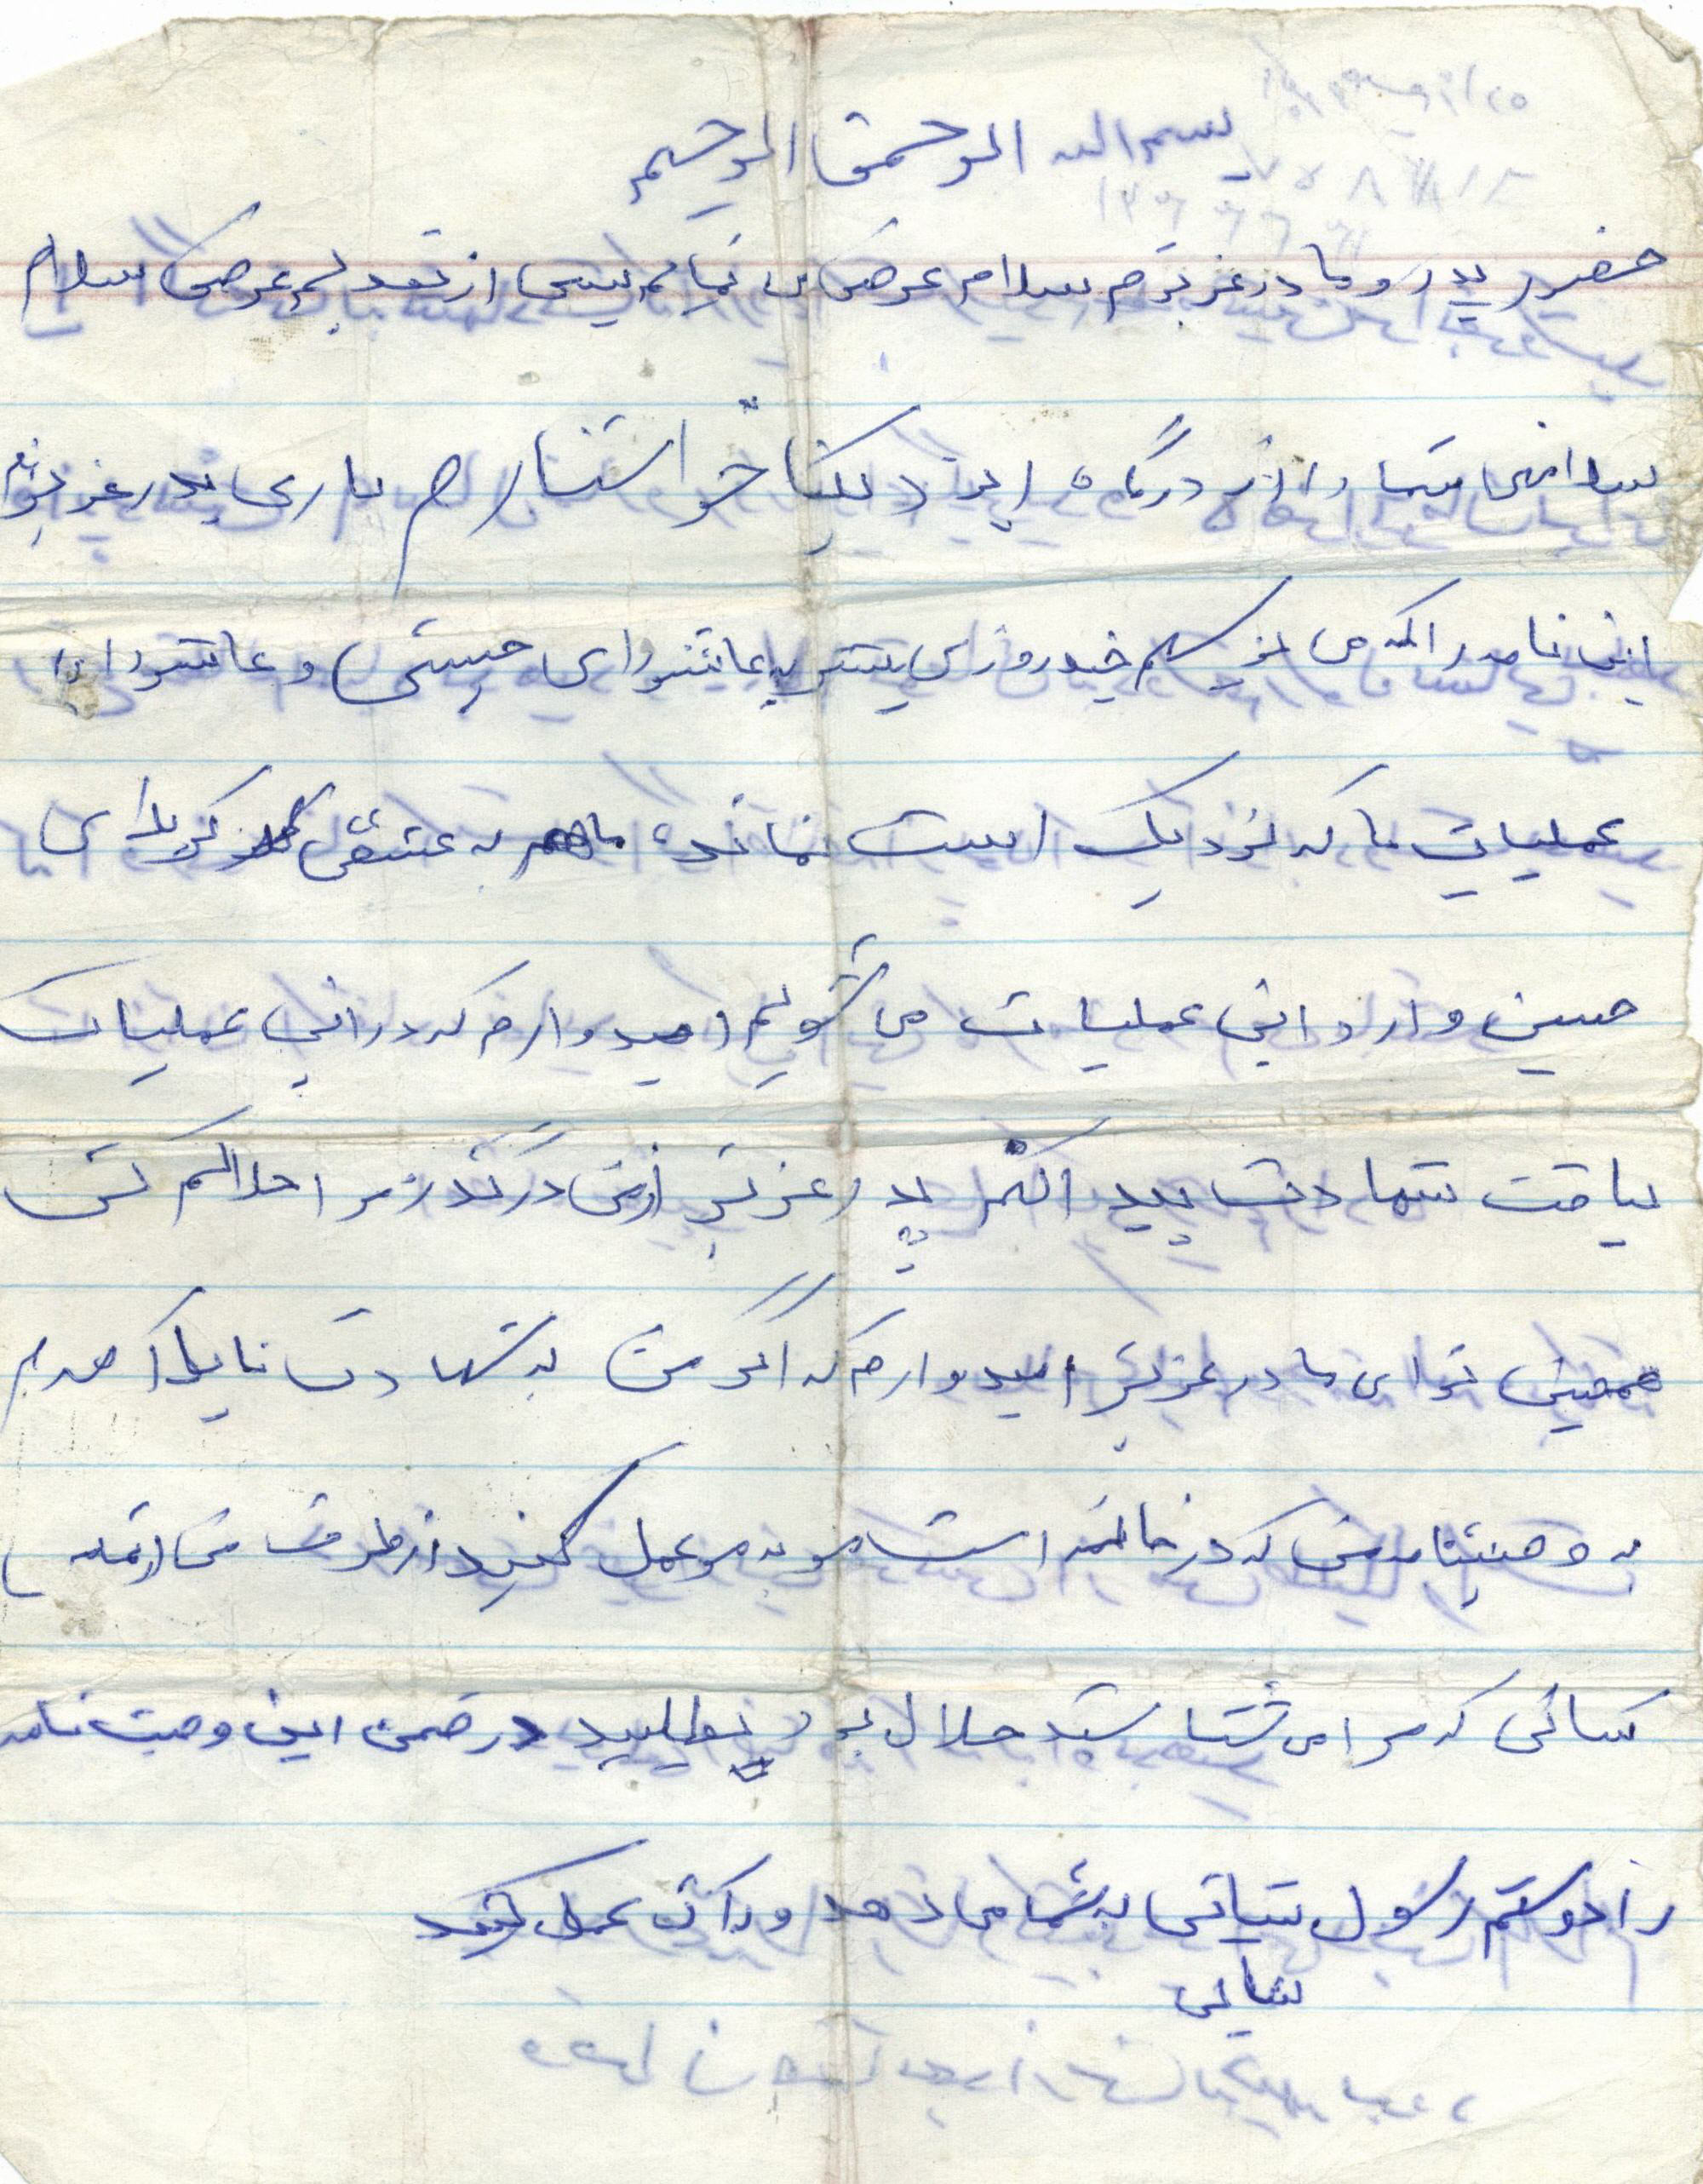 بسم الله الرحمن الرحیم
حضور پدر و مادر عزیزم سلام عرض می نمایم پس از تقدیم عرض سلام
سلامتی شما را از درگاه ایزد یکتا خواستارم باری پدر عزیزم
این نامه را که می نویسم چند روزی بیشتر به عاشورای حسینی و عاشورای
عملیات ما که نزدیک است نمانده ما هم به عشق کربلای
حسین وارد این عملیات می شویم امیدوارم که در این عملیات
لیاقت شهادت پدر عزیز از من درگذر مرا حلالم کن
همچنین تو ای مادر عزیز امیدوارم که اگر من به شهادت نایل آمدم
به وصیتنامه من که در خانه است مو به مو عمل کنید از طرف من از همه
کسانی که مرا می شناسند حلال بودی بطلبید در ضمن این وصیت نامه
را دوستم رسول بیاتی به شما می دهد و به آن عمل کنید